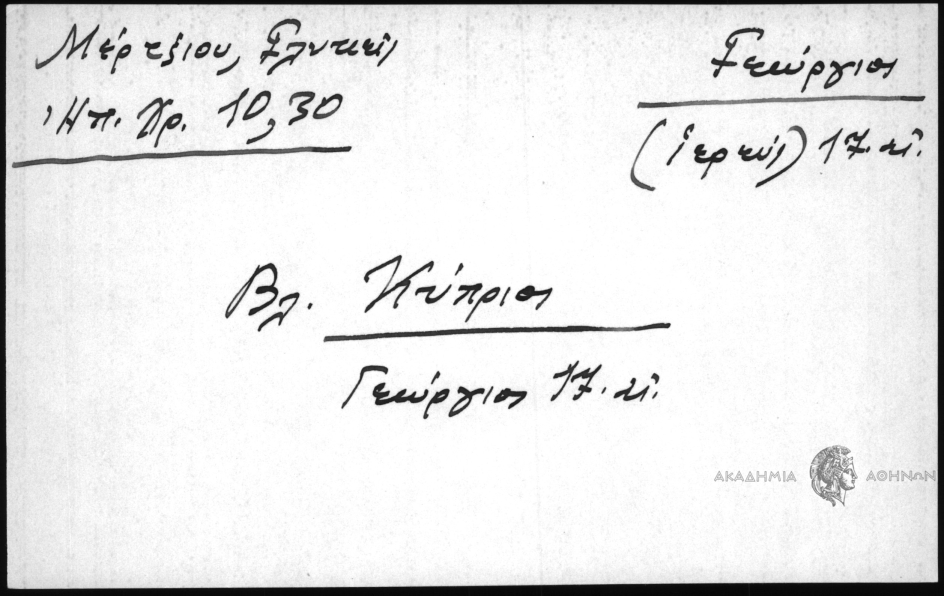 Μέρτζιου, Γλυκεῖς
Ἠπ. Χρ. 10, 30
Γεώργιος
(ἱερεύς) 17. αἰ.
Βλ. Κύπριος
Γεώργιος 17. αἰ.
ΑΚΑΔΗΜΙΑ ΑΘΗΝΩΝ